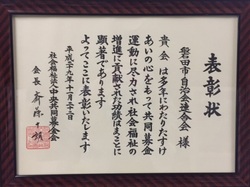 表彰状
磐田市自治会連合会 様
貴会は多年にわたりたすけ
あいの心をもって共同募金
運動に尽力され社会福祉の
増進に貢献された功績はまことに
顕著であります
よってここに表彰いたします
平成二十九年十一月二十二日
社会福祉法人中央共同募金会
会長 斎藤十朗